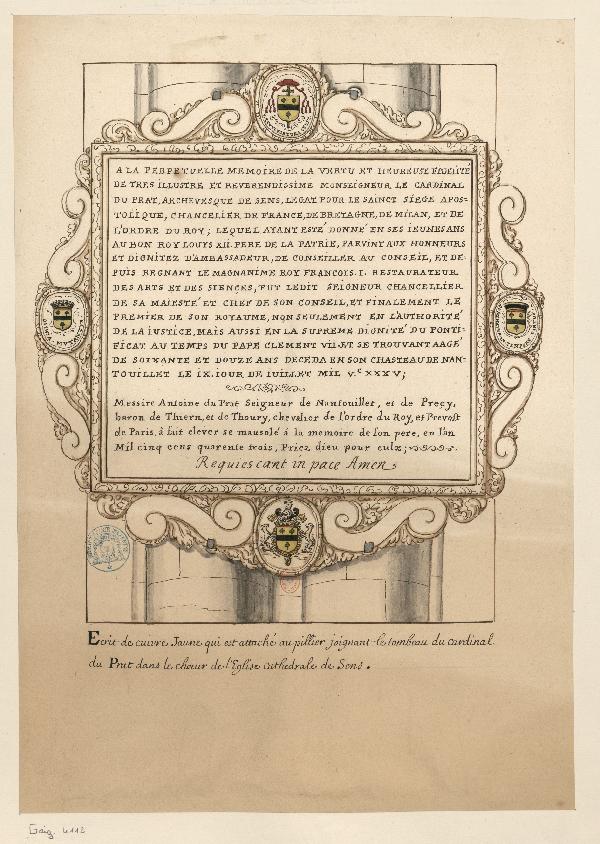 A LA PERPETUELLE MEMOIRE DE LA VERTU ET HEUREUSE FIDELITE
DE TRES ILLUSTRE ET REVERENDISSIME MONSEIGNEUR, LE CARDINAL
DU PRAT, ARCHEVESQUE DE SENS, LEGAT POUR LE SAINCT SIEGE APOS-
TOLIQUE, CHANCELIER DE FRANCE, DE BRETAGNE, DE MILAN, ET DE
L'ORDRE DU ROY; LEQUEL AYANT ESTÉ DONNÉ EN SES IEUNES ANS
AU BON ROY LOUYS XII. PERE DE LA PATRIE, PARVINT AUX HONNEURS
ET DIGNITEZ D'AMBASSADEUR, DE CONSEILLER AU CONSEIL, ET DE-
PUIS REGNANT LE MAGNANIME ROY FRANÇOIS. I. RESTAURATEUR
DES ARTS ET DES SIENCES, FUT LEDIT SEIGNEUR CHANCELLIER
DE SA MAIESTÉ ET CHEF DE SON CONSEIL, ET FINALEMENT LE
PREMIER DE SON ROYAUME, NON SEULEMENT EN L'AUTHORITÉ
DE LA IUSTICE, MAIS AUSSI EN LA SUPREME DIGNITÉ DU PONTI-
FICAT AU TEMPS DU PAPE CLEMENT VII. ET SE TROUVANT AAGÉ
DE SOIXANTE ET DOUZE ANS DECEDA EN SON CHASTEAU DE NAN-
TOUILLET LE IX. IOUR DE IUILLET MIL V.C XXXV;
Messire Antoine du Prat Seigneur de Nantouillet, et de Precy,
baron de Thiern, et de Thoury, chevalier de l'ordre du Roy, et Prevost
de Paris, à fait elever se mausolé á la memoire de son pere, en l'an
Mil cinq cens quarente trois, Priez dieu pour eulx;
Requiescant in pace Amen
Ecrit de cuivre Jaune qui est attaché au pillier joignant le tombeau du cardinal
du Prat dans le chœur de l'Eglise cathedrale de Sens.
Gaig. 4112